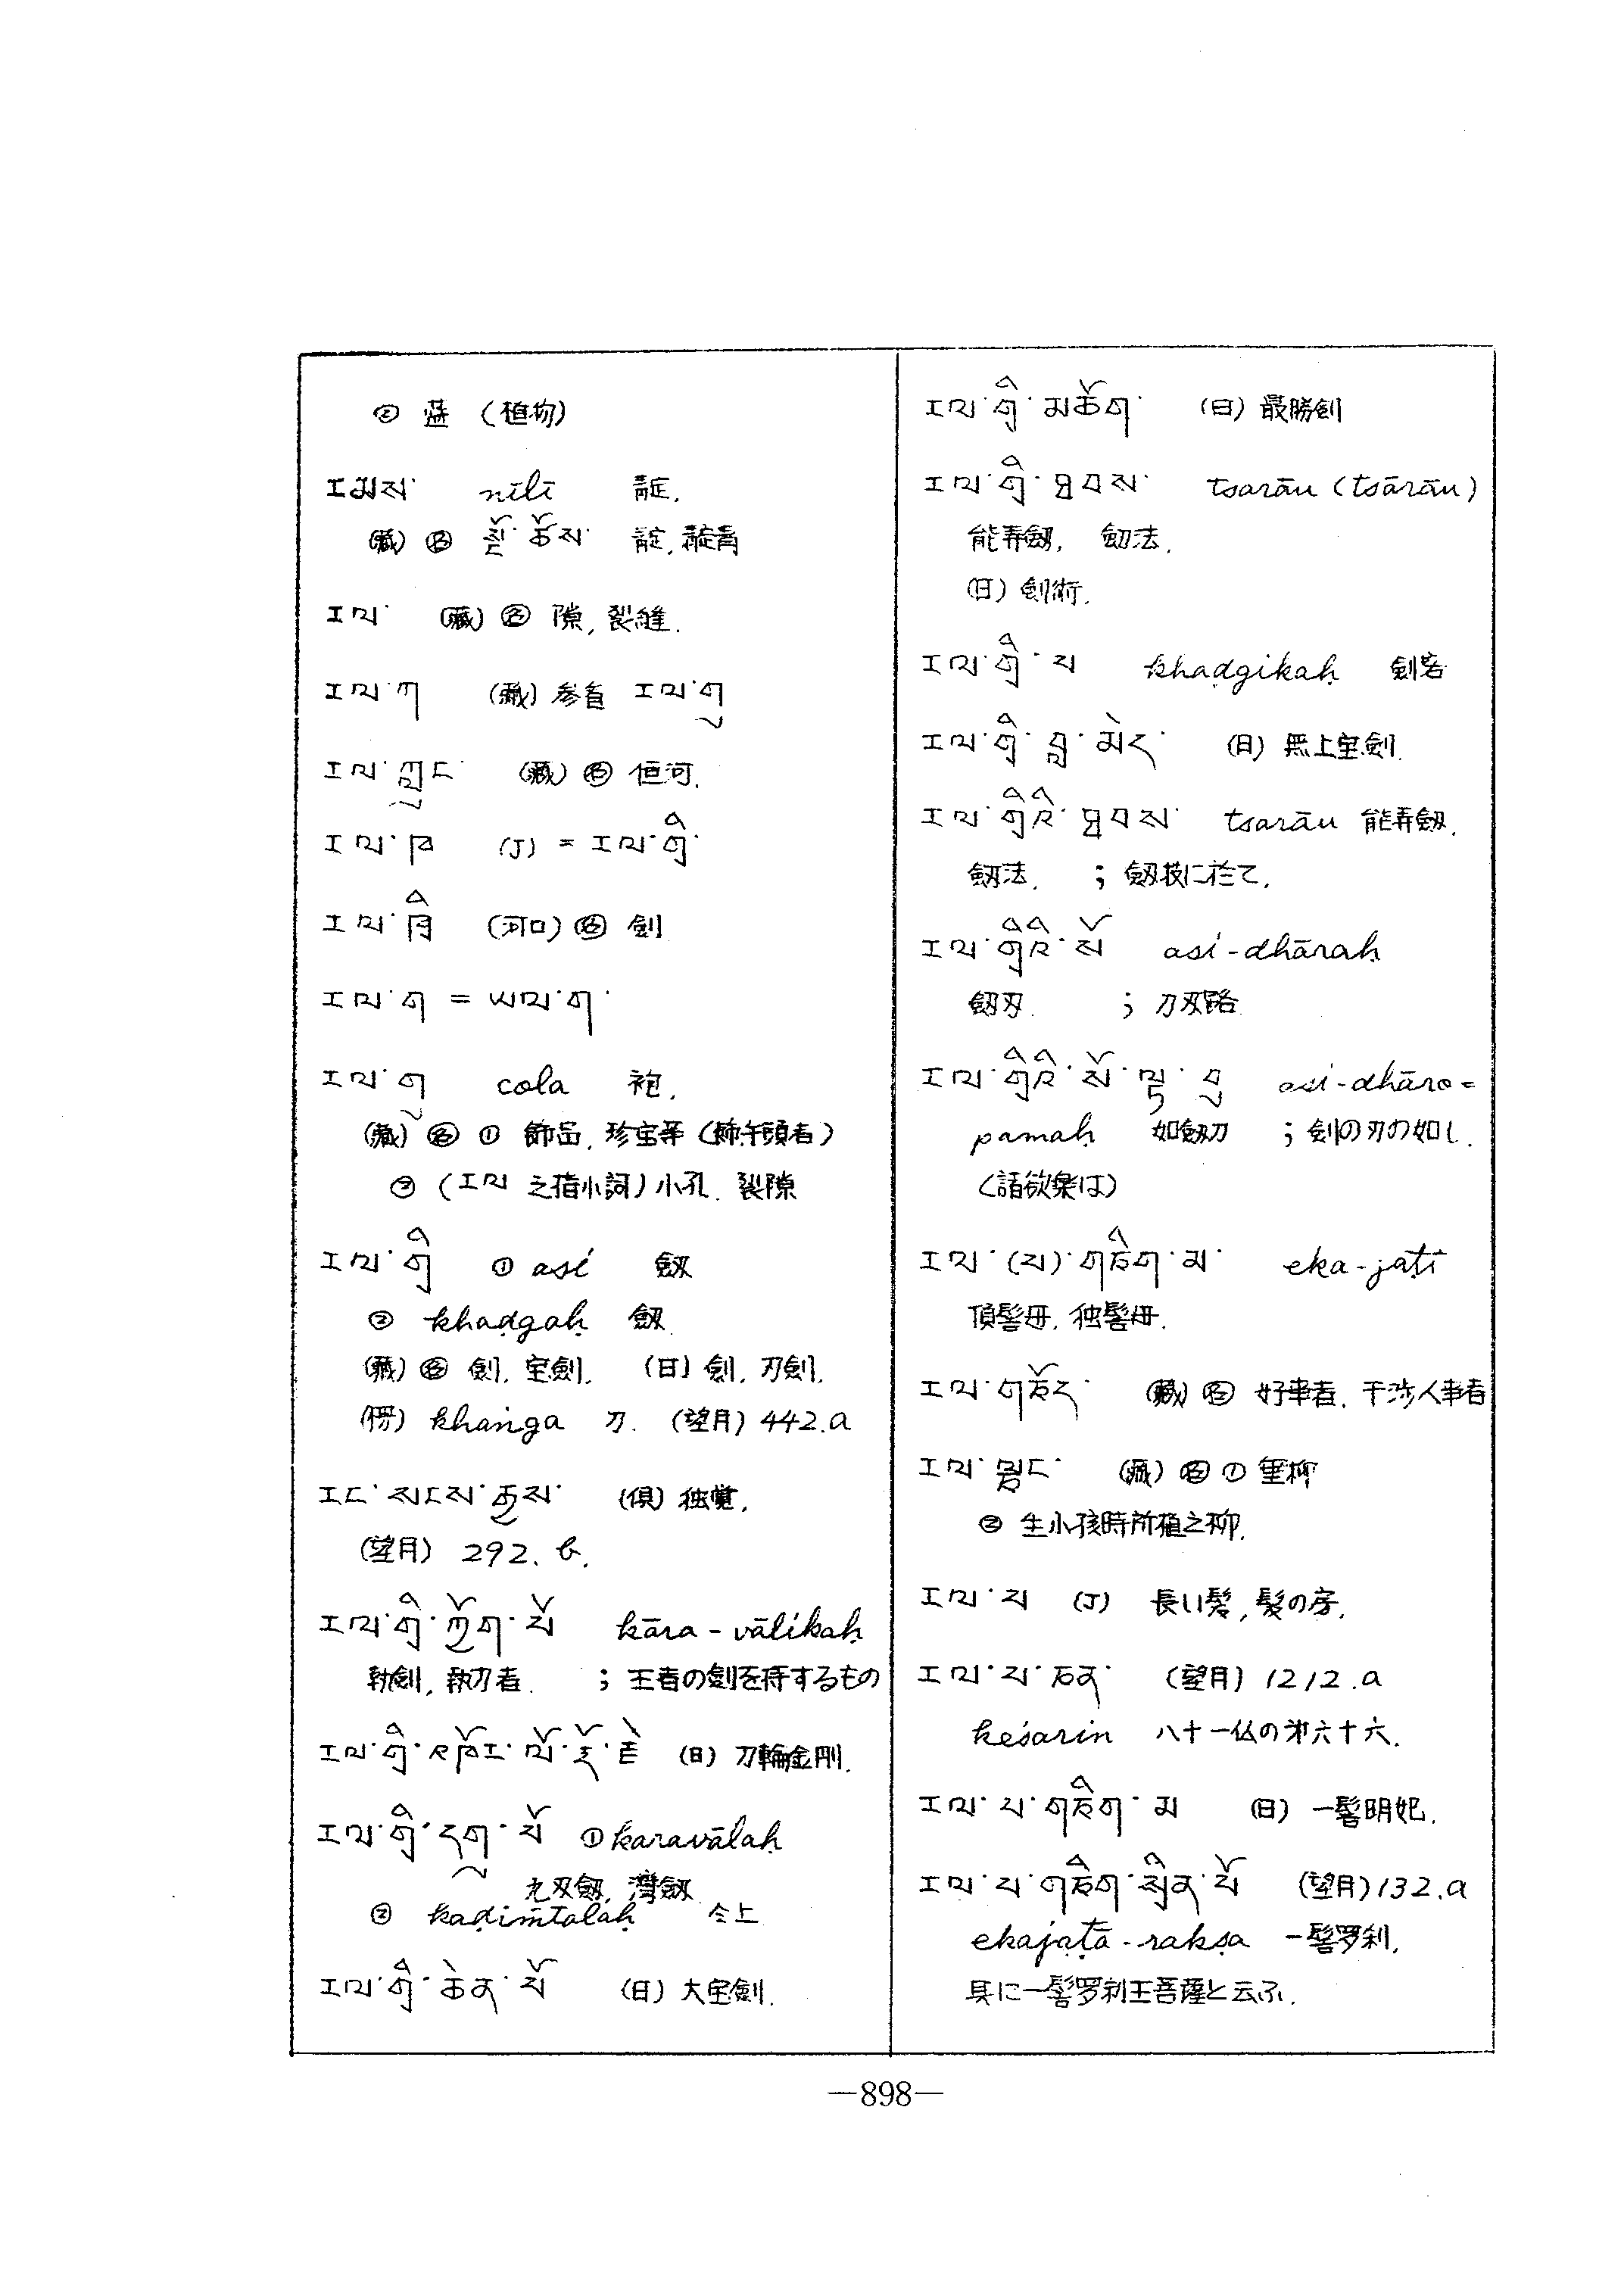 ② 藍 (植物)
རམས་ nīlī 靛.
(藏) 名 སྔོ་ཚོས་ 靛, 靛青
རལ་ (藏) 名 隙, 裂縫.
རལ་ཀ (藏) 参看 རལ་གུ
རལ་ཀླུང་ (藏) 名 恒河.
རལ་ཁ (J) = རལ་གྲི་
རལ་ཁྲི (河口) 名 劍
རལ་ག = ཡལ་ག་
རལ་གུ cola 袍.
(藏) 名 ① 飾品, 珍宝等 (飾于頭者)
② (རལ 之指小詞) 小孔. 裂隙
རལ་གྲི ① asi 劔
② khaḍgaḥ 劔
(藏) 名 劍, 宝劍. (日) 劍, 刃劍.
(楞) khaṅga 刀. (望月) 442.a
རང་སངས་རྒྱས་ (倶) 独覚.
(望月) 292. b.
རལ་གྲི་ཀྱོག་པོ kāra-vālikaḥ
執劍, 執刃者. ; 王者の劍を侍するもの
རལ་གྲི་འཁོར་ལོ་རྡོ་རྗེ (日) 刀輪金剛.
རལ་གྲི་དགུ་པོ ① karavālaḥ
九刄劔, 灣劔
② kaḍiṁtalaḥ 仝上
རལ་གྲི་ཆེན་པོ (日) 大宝劍.
རལ་གྲི་མཆོག་ (日) 最勝劍
རལ་གྲི་ཐབས་ tsarāu (tsārāu)
能弄劔, 劔法.
(日) 劍術.
རལ་གྲི་པ khaḍgikaḥ 劍客
རལ་གྲི་བླ་མེད་ (日) 無上宝劍.
རལ་གྲིའི་ཐབས་ tsarāu 能弄劔.
劔法. ; 劔技に於て.
རལ་གྲིའི་སོ asi-dhāraḥ
劔刃. ; 刀刄路
རལ་གྲིའི་སོ་ལྟ་བུ asi-dhāro=
pamaḥ 如劔刀 ; 劍の刃の如し.
(諸欲樂は)
རལ་(པ)་གཅིག་མ་ eka-jaṭī
頂髻母, 独髻母.
རལ་གཅོད་ (藏) 名 好事者, 干涉人事者
རལ་ལྕང་ (藏) 名 ① 垂柳
② 生小孩時所植之柳.
རལ་པ (J) 長い髪, 髪の房.
རལ་པ་ཅན་ (望月) 1212.a
keśarin 八十一仏の第六十六.
རལ་པ་གཅིག་མ (日) 一髻明妃.
རལ་པ་གཅིག་སྲིན་པོ (望月) 132.a
ekajaṭā-rakṣa 一髻罗刹.
具に一髻罗刹王菩薩と云ふ.
—898—